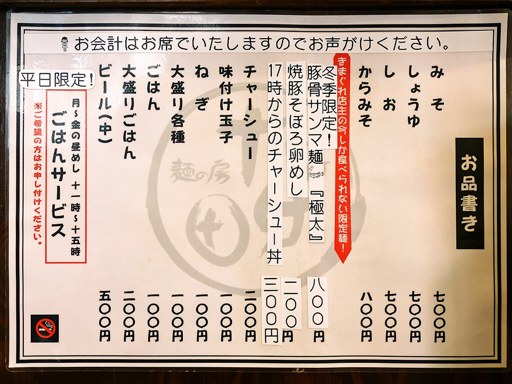 お会計はお席でいたしますのでお声がけください。
お品書き
みそ 七〇〇円
しょうゆ 七〇〇円
しお 七〇〇円
からみそ 八〇〇円
きまぐれ店主の今しか食べられない限定麺！
冬季限定！
豚骨サンマ麺『極太』 八〇〇円
焼豚そぼろ卵めし 二〇〇円
17時からのチャーシュー丼 三〇〇円
チャーシュー 二〇〇円
味付け玉子 一〇〇円
ねぎ 一〇〇円
大盛り各種 一〇〇円
ごはん 一〇〇円
大盛りごはん 二〇〇円
ビール(中) 五〇〇円
平日限定！
月～金の昼めし 十一時～十五時
ごはんサービス
※ご希望の方はお申し付けください。
麺の房